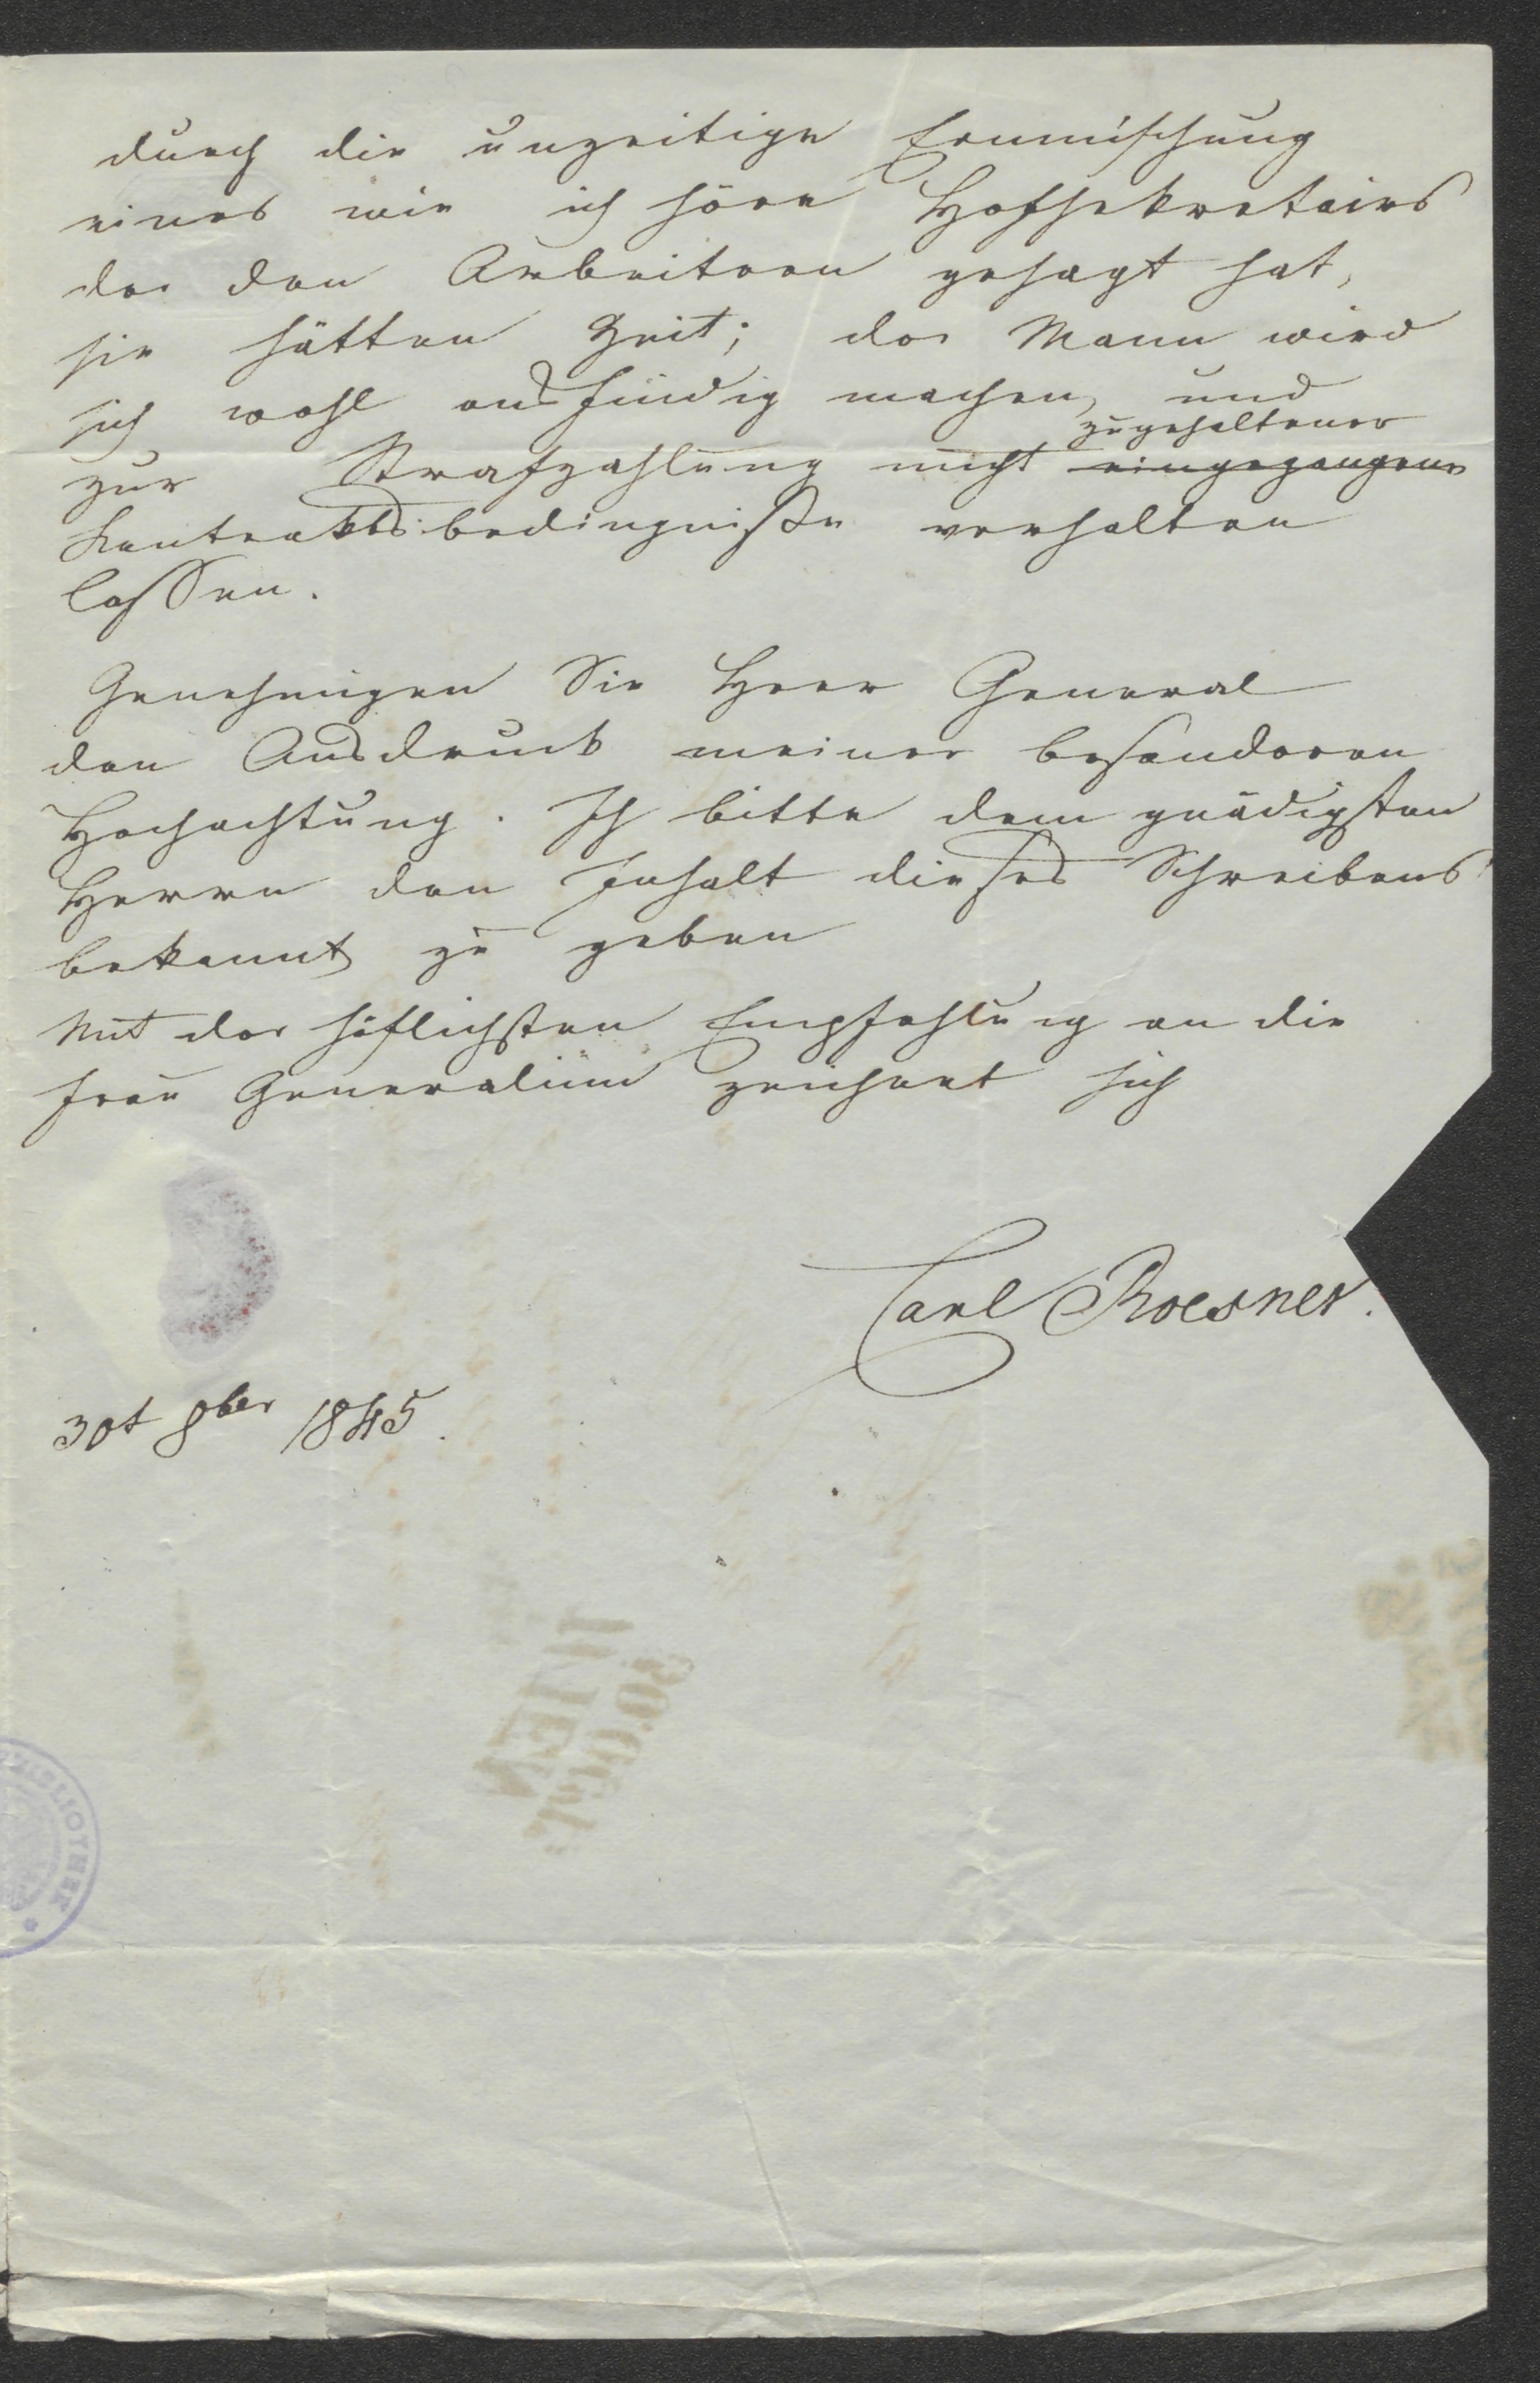 durch die unzeitige Einmischung
eines wie ich höre Hofsekretairs
der den Arbeitern gesagt hat,
sie hätten Zeit; der Mann wird
sich wohl ausfindig machen, und
zugehaltener
zur Strafzahlung nicht eingegangene
Kontraktsbedingniße verhalten
lassen.
Genehmigen Sie Herr General
den Ausdruck meiner besonderen
Hochachtung. Ich bitte dem gnädigsten
Herrn den Inhalt dieses Schreibens
bekannt zu geben
Mit der höflichsten Empfehlung an die
Frau Generalinn zeichnet sich
Carl Roesner.
30t 8ber 1845.
WIEN
30. Oct.
BIBLIOTHEK